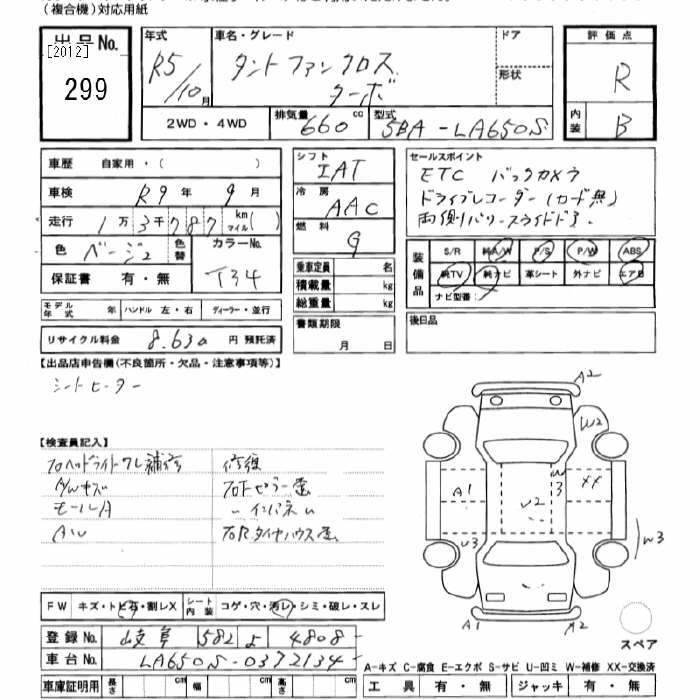 (複合機)対応用紙
出品No. [2012] 299
年式 R5/10月
車名・グレード タントファンクロス ターボ
ドア
形状
評価点 R
内装 B
2WD・4WD
排気量 660 cc
型式 5BA-LA650S
車歴 自家用・( )
車検 R9年 9月
走行 1万3千787 km マイル( )
色 ベージュ 色替 カラーNo. T34
保証書 有・無
シフト IAT
冷房 AAC
燃料 G
乗車定員 名
積載量 kg
総重量 kg
書類期限 月 日
セールスポイント
ETC バックカメラ
ドライブレコーダー(カード無)
両側パワースライドドア.
装備品 S/R 純A/W P/S P/W ABS
純TV 純ナビ 革シート 外ナビ エアB
ナビ型番
後日品
モデル年式 年 月 ハンドル 左・右 ディーラー・並行
リサイクル料金 8.630 円 預託済
【出品店申告欄(不良箇所・欠品・注意事項等)】
シートヒーター
【検査員記入】
フロヘッドライトワレ補修 修復
A/Wキズ
モールA
AW
FW キズ・トビ石・割レX シート内装 コゲ・穴・汚レ・シミ・破レ・スレ
A2
W2
A1 W3 XX
V2
U3 W3
A1 A2
スペア
登録No. 岐阜 582 よ 4808
車台No. LA650S-0372134
A-キズ C-腐食 E-エクボ S-サビ U-凹ミ W-補修 XX-交換済
車庫証明用 長さ cm 幅 cm 高さ cm
工具 有・無 ジャッキ 有・無